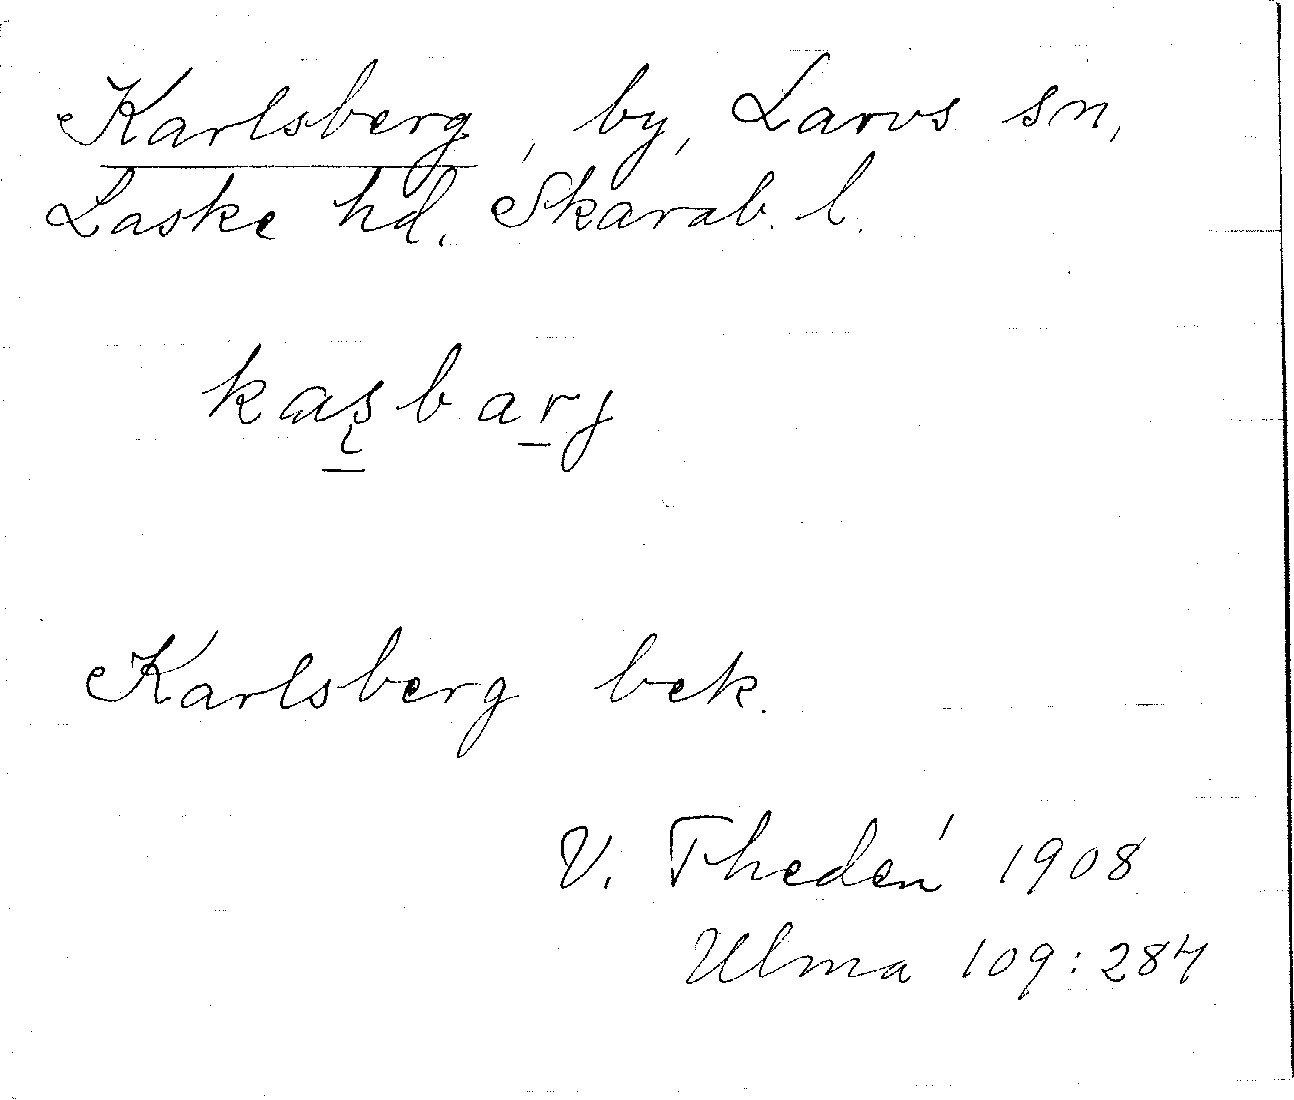 Karlsberg, by, Larvs sn,
Laske hd. Skarab. l.
kas̨barj
Karlsberg bek.
V. Thedén 1908
Ulma 109:284